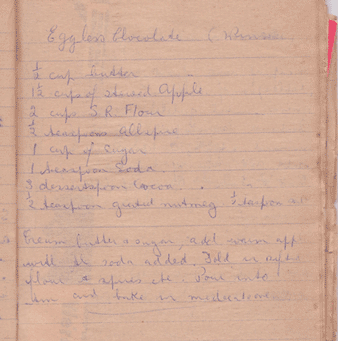 Eggless Chocolate (
½ cup butter
1½ cups of stewed Apple
2 cups S.R. Flour
teaspoons Allspice
1 cup of Sugar
1 teaspoon Soda
3 dessertspoon Cocoa
½ teaspoon grated nutmeg ½
Cream butter & sugar, add warm app
with soda added. Fold in
flour & spices etc. Pour into
and bake in